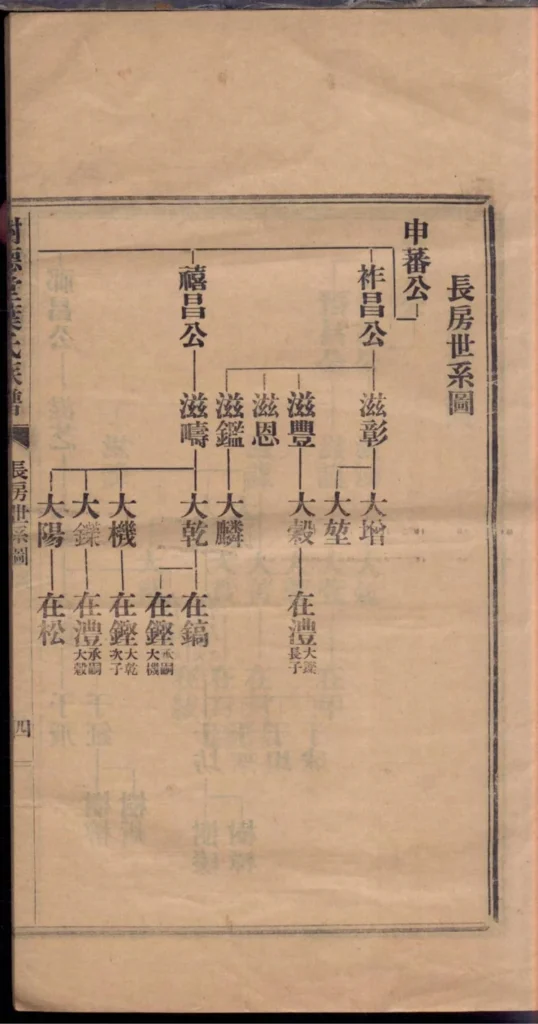 長房世系圖
申蕃公
祚昌公
滋彰
大增
大堃
滋豐
大穀
在澧
大鑠長子
滋恩
滋鑑
大麟
禧昌公
滋疇
大乾
在鎬
在鏗
承嗣大機
大機
在鏗
大乾次子
大鑠
在澧
承嗣大穀
大陽
在松
樹德堂葉氏族譜
長房世系圖
四